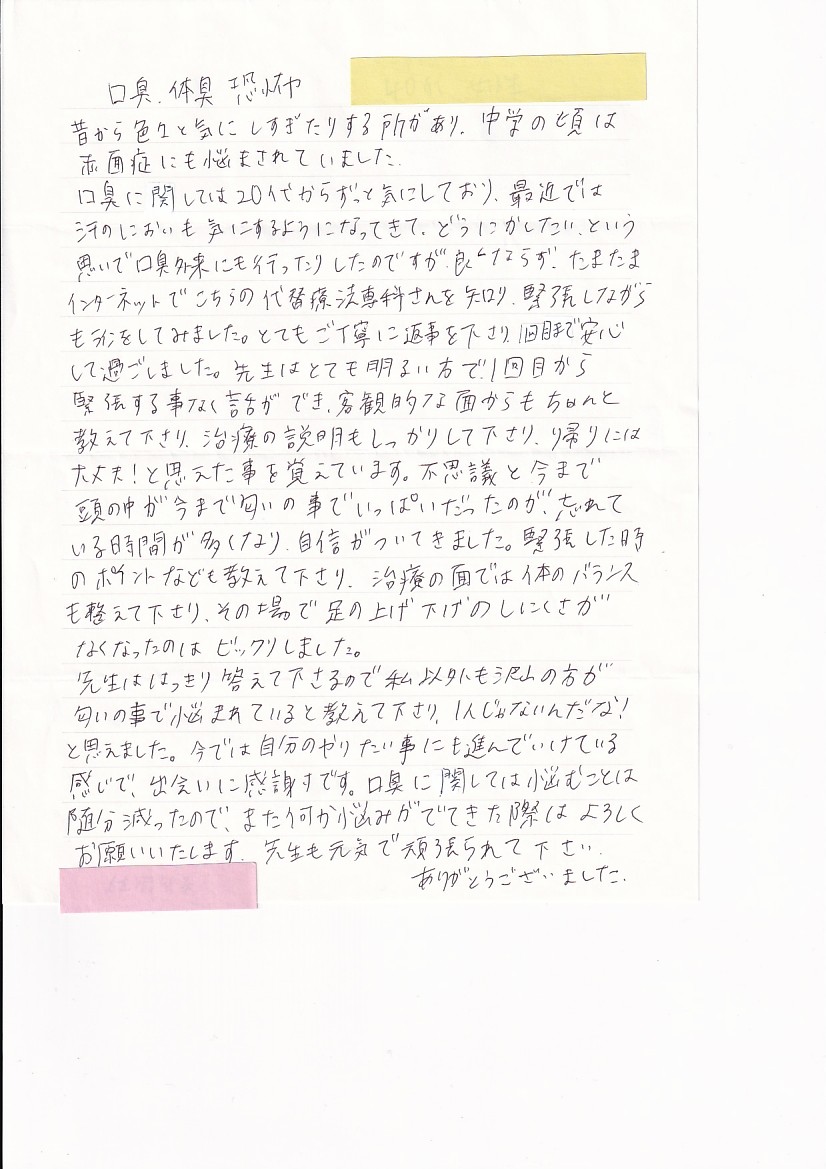 口臭.体臭 恐怖
昔から色々と気にしすぎたりする所があり、中学の頃は
赤面症にも悩まされていました.
口臭に関しては20代からずっと気にしており、最近では
汗のにおいも気にするようになってきて、どうにかしたい、という
思いで口臭外来にも行ったりしたのですが、良くならず、たまたま
インターネットでこちらの代替療法専科さんを知り、緊張しながら
もラインをしてみました。とてもご丁寧に返事を下さり、1回目まで安心
して過ごしました。先生はとても明るい方で、1回目から
緊張する事なく話ができ、客観的な面からもちゃんと
教えて下さり、治療の説明もしっかりして下さり、帰りには
大丈夫!と思えた事を覚えています。不思議と今まで
頭の中が今まで匂いの事でいっぱいだったのが、忘れて
いる時間が多くなり、自信がついてきました。緊張した時
のポイントなども教えて下さり、治療の面では体のバランス
も整えて下さり、その場で足の上げ下げのしにくさが
なくなったのはビックリしました。
先生ははっきり答えて下さるので私以外にも沢山の方が
匂いの事で悩まれていると教えて下さり、1人じゃないんだな!
と思えました。今では自分のやりたい事にも進んでいけている
感じで、出会いに感謝です。口臭に関しては悩むことは
随分減ったので、また何か悩みがでてきた際はよろしく
お願いいたします. 先生も元気で頑張られて下さい.
ありがとうございました.